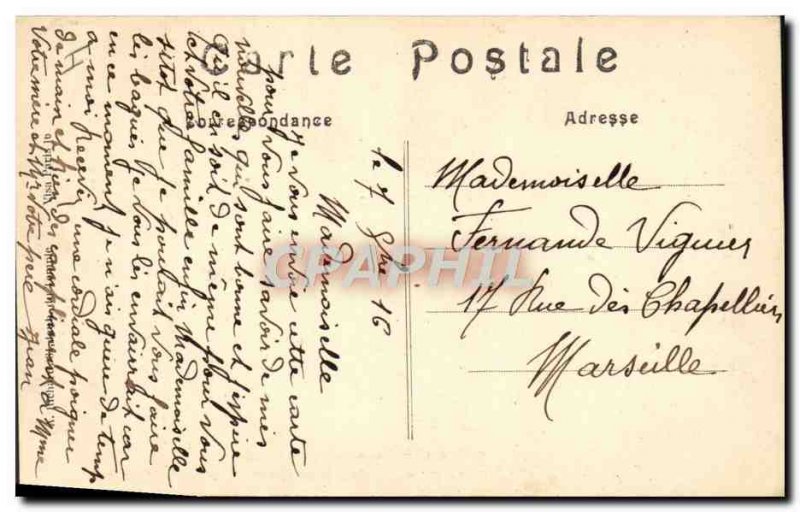 Carte Postale
Correspondance
Adresse
le 7 9bre 16
Mademoiselle
Je vous envoie cette carte
pour vous faire savoir de mes
nouvelles qui sont bonne et j'espère
qu'il en soit de même pour vous
et votre famille enfin Mademoiselle
sitot que je pourrait vous faire
les bagues je vous les enverrait car
en ce moment je n'ais guère de temp
a moi recevez une cordiale poignée
de main et bien des compliment a Mme
Votre mère et Mr Votre père Jean
Mademoiselle
Fernande Viguier
17 Rue des Chapeliers
Marseille
CPAPHIL